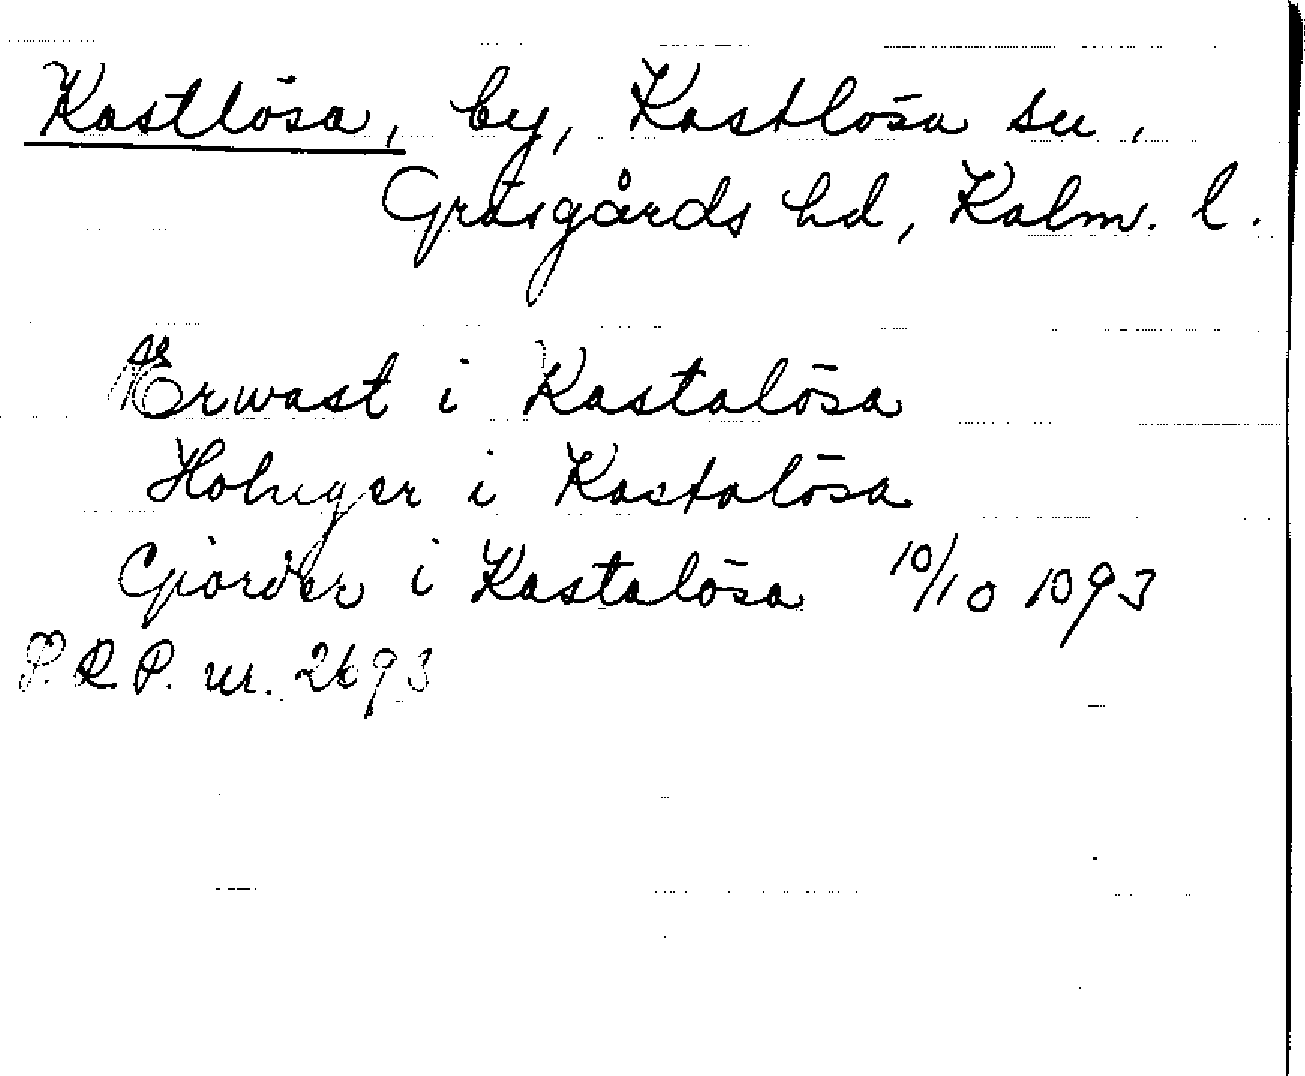 Kastlösa, by, Kastlösa sn,
Gräsgårds hd, Kalm. l.
Ærwast i Kastalösa
Holmger i Kastalösa
Giorder i Kastalösa 10/10 1393
S. R. P. nr. 2693